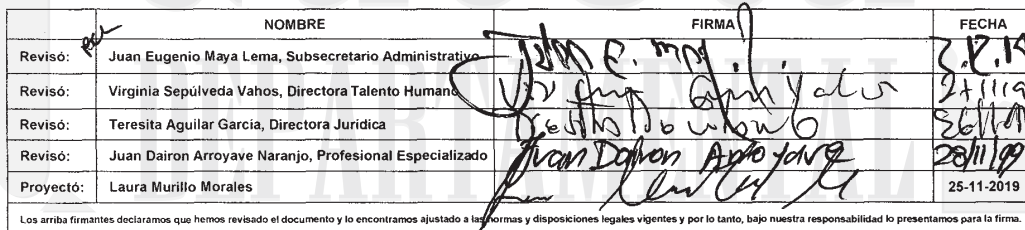 NOMBRE FIRMA FECHA
Revisó: Juan Eugenio Maya Lema, Subsecretario Administrativo
Revisó: Virginia Sepúlveda Vahos, Directora Talento Humano
Revisó: Teresita Aguilar García, Directora Jurídica
Revisó: Juan Dairon Arroyave Naranjo, Profesional Especializado Juan Dairon Arroyave
Proyectó: Laura Murillo Morales 25-11-2019
Los arriba firmantes declaramos que hemos revisado el documento y lo encontramos ajustado a las normas y disposiciones legales vigentes y por lo tanto, bajo nuestra responsabilidad lo presentamos para la firma.
DEPARTAMENTAL